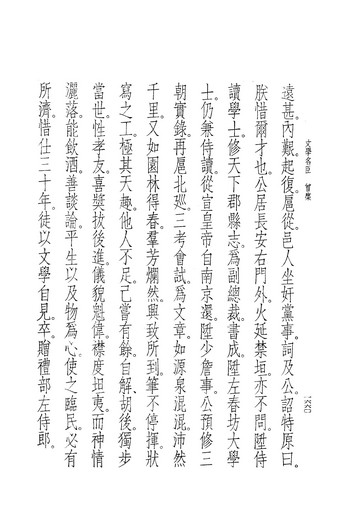 文學名臣　曾棨
遠甚。內艱。起復。扈從。邑人坐奸黨事。詞及公。詔特原曰。
朕惜爾才也。公居長安右門外。火延禁垣。亦不問。陞侍
讀學士。修天下郡縣志。爲副總裁。書成。陞左春坊大學
士。仍兼侍讀。從宣皇帝自南京還。陞少詹事。公預修三
朝實錄。再扈北巡。三考會試。爲文章。如源泉混混。沛然
千里。又如園林得春。羣芳爛然。興致所到。筆不停揮。狀
寫之工。極其天趣。他人不足。己嘗有餘。自解、胡後。獨步
當世。性孝友。喜獎拔後進。儀貌魁偉。襟度坦夷。而神情
灑落。能飲酒。善談論。平生以及物爲心。使之臨民。必有
所濟。惜仕三十年。徒以文學自見。卒。贈禮部左侍郎。